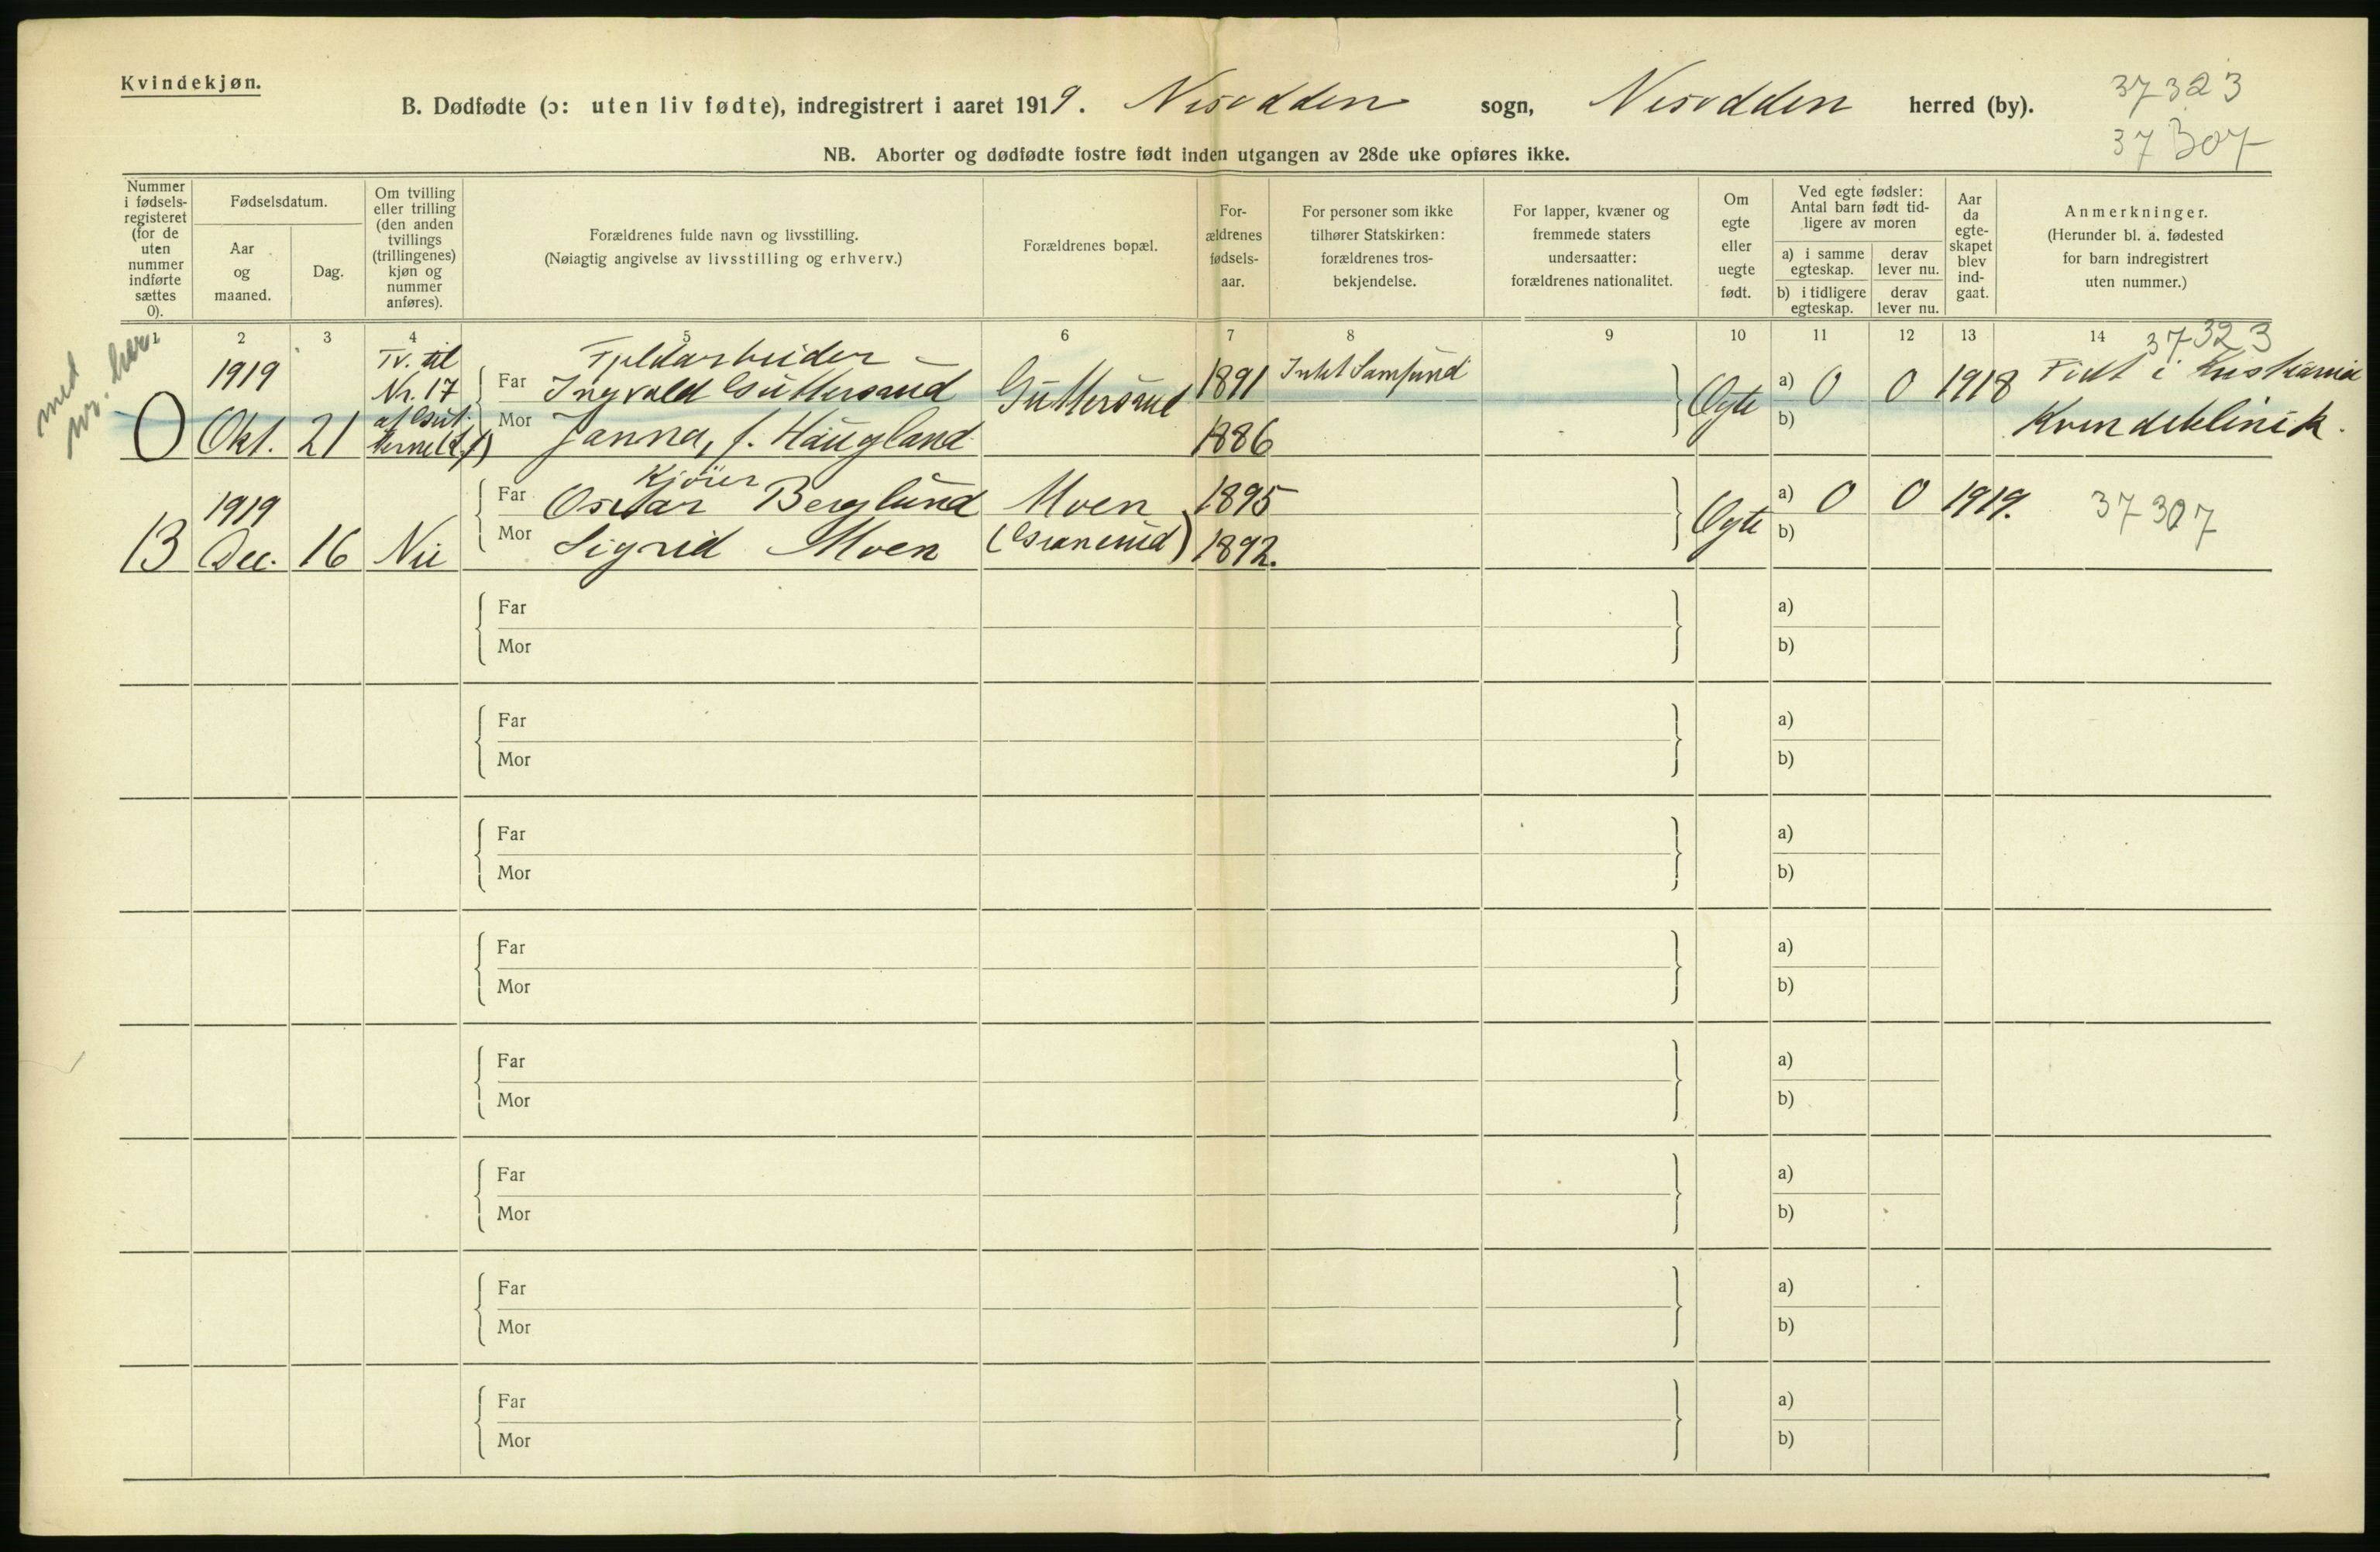 Kvindekjøn.
B. Dødfødte (ɔ: uten liv fødte), indregistrert i aaret 1919. Nesodden sogn, Nesodden herred (by).
37323
37307
NB. Aborter og dødfødte fostre født inden utgangen av 28de uke opføres ikke.
Nummer i fødsels-registeret (for de uten nummer indførte sættes 0).
Fødselsdatum.
Aar og maaned.
Dag.
Om tvilling eller trilling (den anden tvillings (trillingenes) kjøn og nummer anføres).
Forældrenes fulde navn og livsstilling.
(Nøiagtig angivelse av livsstilling og erhverv.)
Forældrenes bopæl.
For-ældrenes fødsels-aar.
For personer som ikke tilhører Statskirken: forældrenes tros-bekjendelse.
For lapper, kvæner og fremmede staters undersaatter: forældrenes nationalitet.
Om egte eller uegte født.
Ved egte fødsler: Antal barn født tid-ligere av moren
a) i samme egteskap.
derav lever nu.
b) i tidligere egteskap.
derav lever nu.
Aar da egte-skapet blev ind-gaat.
Anmerkninger.
(Herunder bl. a. fødested for barn indregistrert uten nummer.)
1 2 3 4 5 6 7 8 9 10 11 12 13 14
37323
med nr. her.
0 1919 Okt. 21 Tv. til Nr. 17
Fjeldarbeider
Far Ingvald Guttersrud Guttersrud 1891 Intet Samfund
Mor Janna, f. Haugland 1886
Ægte a) 0 0 1918
b)
Født i Kristiania
Kvindeklinik.
13 1919 Dec. 16 Nei
Kjører
Far Oskar Berglund Moen 1895
Mor Sigrid Moen 1892.
Ægte a) 0 0 1919. 37307
b)
Far a)
Mor b)
Far a)
Mor b)
Far a)
Mor b)
Far a)
Mor b)
Far a)
Mor b)
Far a)
Mor b)
Far a)
Mor b)
Far a)
Mor b)